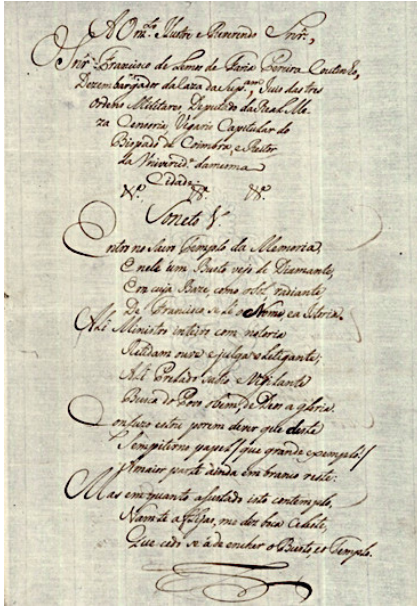 Ao Illustre e Reverendo Snr.,
Snr. Francisco de Lemos de Faria Pereira Coutinho,
Dezembargador da Caza da Sup.am, Juis das tres
Ordens Militares Deputado da Real Me-
za Censoria, Vigario Capitular do
Bispado de Coimbra, e Reitor
da Universid.e da mesma
Cidade.
Soneto V.
Entro no Sacro Templo da Memoria,
E nele um Busto vejo de Diamante,
Em cuja Baze, como o Sol radiante,
De Francisco se lê o Nome, e a Istoria.
Ali Ministro inteiro com notoria
Retidam ouve e julga o letigante;
Ali Prelado justo e Vigilante
Busca do Povo o bem, de Deos a gloria.
Confuzo estou porem de ver que deste
Sempiterno papel / que grande exemplo! /
A maior parte ainda em branco reste:
Mas em quanto asustado isto contemplo,
Nam te aflijas, me diz voz Celeste,
Que cedo se á de encher o Busto, e o Templo.